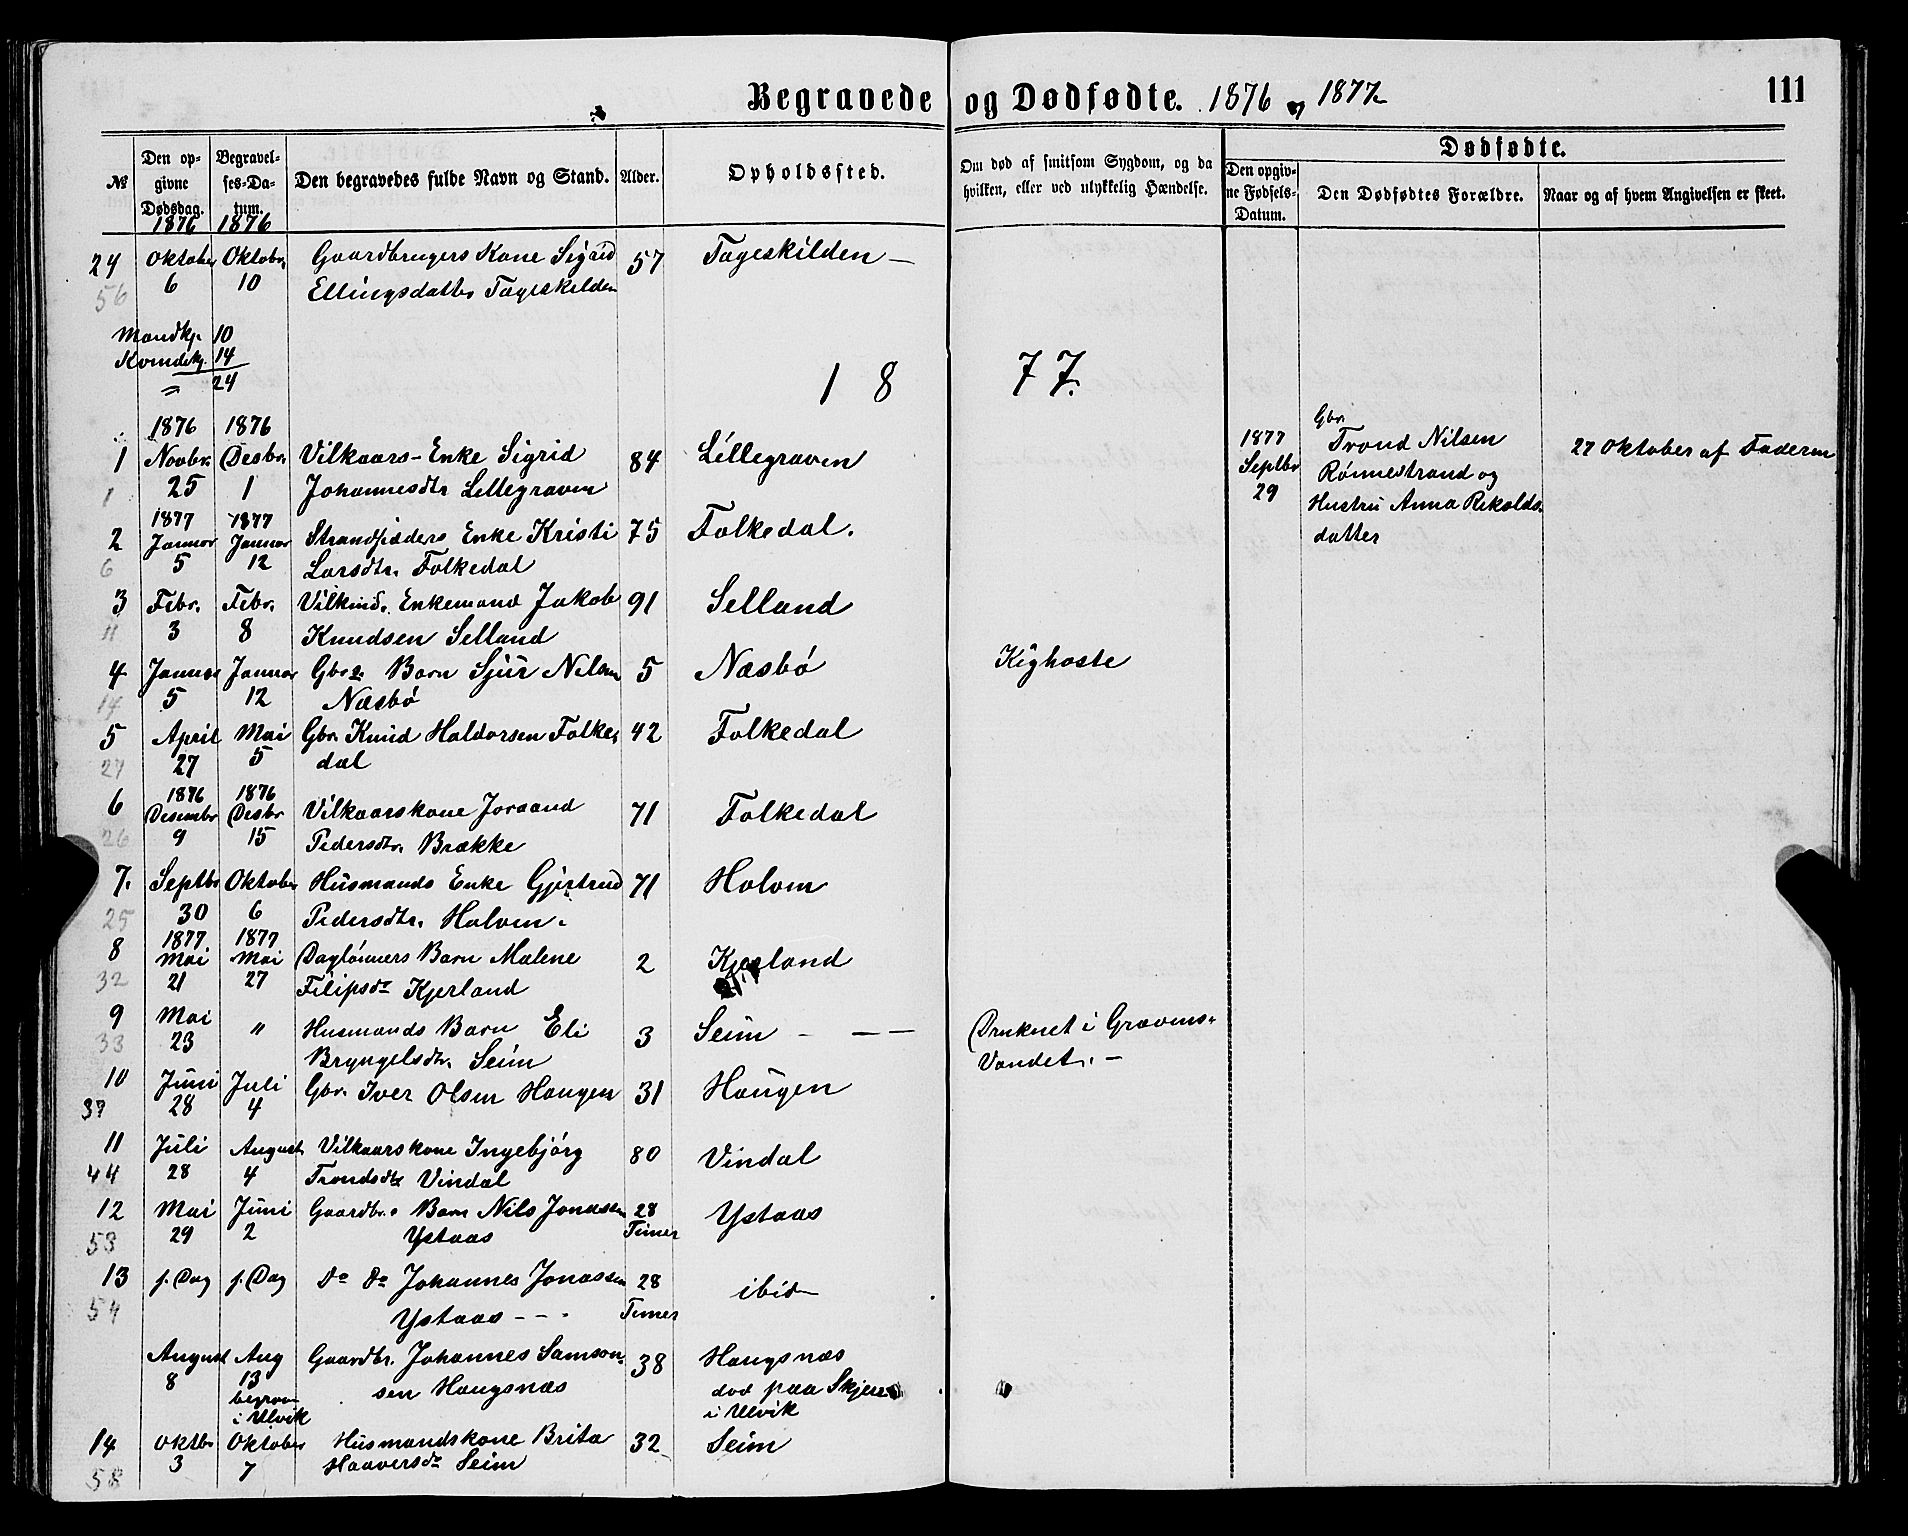 Begravede og Dødfødte. 1876 og 1877
111
№
Den op-
givne
Dødsdag.
1876
Begravel-
ses-Da-
tum.
1876
Den begravedes fulde Navn og Stand.
Alder.
Opholdssted.
Om død af smitsom Sygdom, og da
hvilken, eller ved ulykkelig Hændelse.
Dødfødte.
Den opgiv-
ne Fødsels-
Datum.
Den Dødfødtes Forældre.
Naar og af hvem Angivelsen er skeet.
24 Oktober Oktobr. Gaardbrugers Kone Sigrid 57 Tageskilden —
56 6 10 Ellingsdatter Tageskilden
Mandkj. 10
Kvindekj. 14
24
1877.
1876 1876
1 Novbr. Desbr. Vilkaars-Enke Sigrid 84 Lillegraven
1 25 1 Johannesdtr Lillegraven
1877
Septbr
29
Gbr.
Trond Nilsen
Rønnestrand og
Hustru Anna Rikolds-
datter
27 Oktober af Faderen
1877 1877
2 Januar Januar Enke Kristi 75 Folkedal.
6 5 12 Larsdtr. Folkedal
3 Febr. Febr. Enkemand Jakob 91 Selland
11 3 8 Knudsen Selland
4 Januar Januar Gbrs. Barn Sjur Nilsen 5 Næsbø Kighoste
14 5 12 Næsbø
5 April Mai Gbr. Knud Haldorsen Folke- 42 Folkedal
27 27 5 dal
1876 1876
6 Desembr Desbr Vilkaarskone Joraand 71 Folkedal
26 9 15 Pedersdtr. Brække
7. Septbr Oktober Husmands Enke Gjertrud 71 Holven
25 30 6 Pedersdtr. Holven.
1877 1877
8 Mai Mai Daglønners Barn Malene 2 Kjerland
32 21 27 Filipsdr Kjerland
9 Mai " Husmands Barn Eli 3 Seim - — — Druknet i Gravens-
33 23 Bryngelsdtr. Seim Vandet. —
10 Juni Juli Gbr. Iver Olsen Haugen 31 Haugen
37 28 4
11 Juli August Vilkaarskone Ingebjørg 80 Vindal
44 28 4 Trondsdtr Vindal
12 Mai Juni Gaardbr. Barn Nils Jonassen 28 Ystaas
53 29 2 Ystaas Timer
13 s. Dag s. Dag Do Do Johannes Jonassen 28 ibid—
54 Ystaas - - - Timer
August Aug Gaardbr. Johannes Samson- 38 Haugsnæs
8 13 sen Haugsnæs død paa
begrav i Ulvik
i Ulvik
14 Oktbr Oktober Husmandskone Brita 32 Seim
58 3 7 Haaversdr Seim